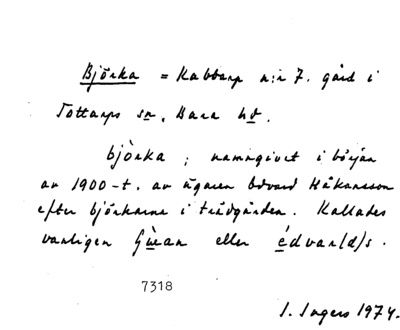 Björka = Kabbarp n:r 7. gård i
Tottarps sn, Bara hd.
bjòrka ; namngivet i början
av 1900-t. av ägaren Edvard Håkansson
efter björkarna i trädgården. Kallades
vanligen eller édvar(d)s.
7318
I. Ingers 1974.